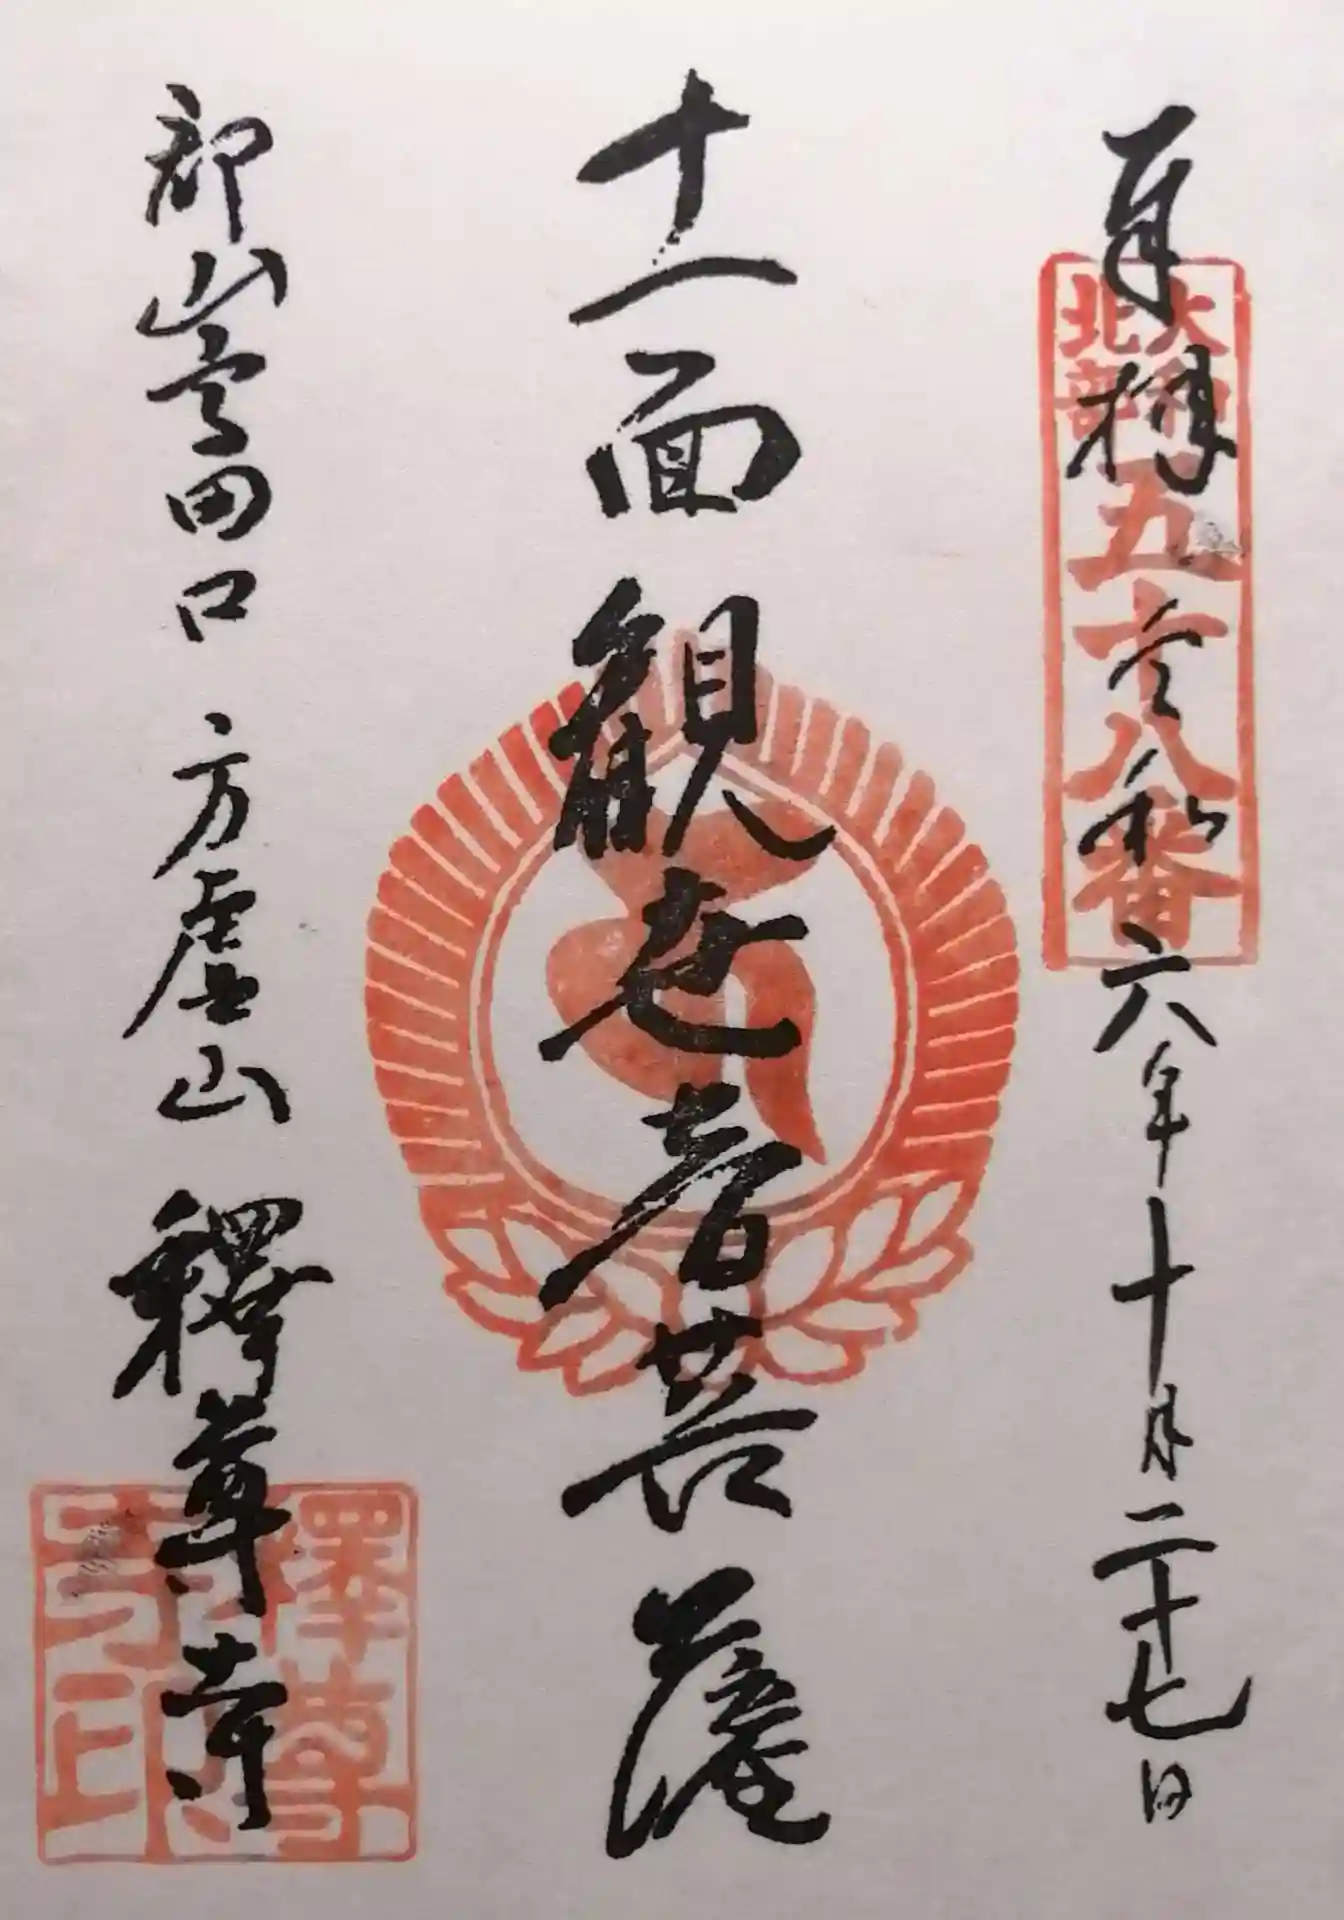 奉拝 令和六年十月二十七日
大和北部 五十八番
十一面観世音菩薩
郡山高田口 方虚山 釋尊寺
釋尊寺印